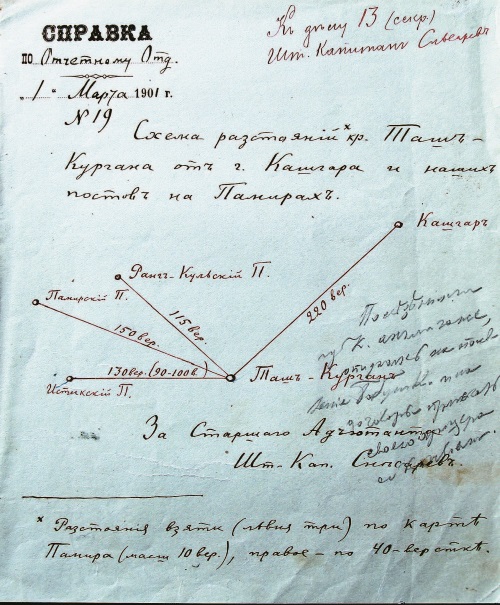 СПРАВКА
по Отчетному Отд.
„1" Марта 1901 г.
N 19
Къ дѣлу 13 (секр)
Шт. Капитанъ Снѣсаревъ
Схема разстояній ˣ кр. Ташъ-
Кургана отъ г. Кашгара и нашихъ
постовъ на Памирахъ.
Кашгаръ
Рангъ-Кульскій П.
Памирскій П.
220 вер.
115 вер.
150 вер.
130 вер. (90-100 в.)
Ташъ-Курганъ
Истикскій П.
За Старшаго Адъютанта
Шт. Кап. Снѣсаревъ.
ˣ Разстоянія взяты (лѣвыя три) по картѣ
Памира (масш 10 вер.), правое - по 40-версткѣ.